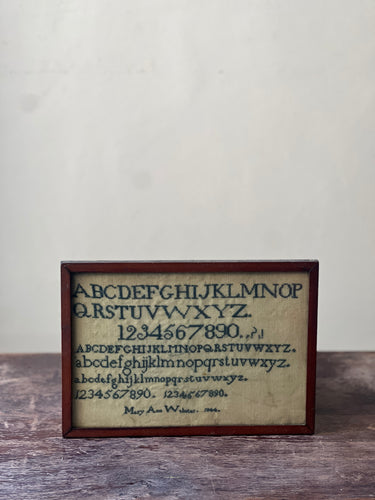 ABCDEFGHIJKLMNOP
QRSTUVWXYZ.
1234567890.,?!
ABCDEFGHIJKLMNOPQRSTUVWXYZ.
abcdefghijklmnopqrstuvwxyz.
abcdefghijklmnopqrstuvwxyz.
1234567890. 1234567890.
Mary Ann